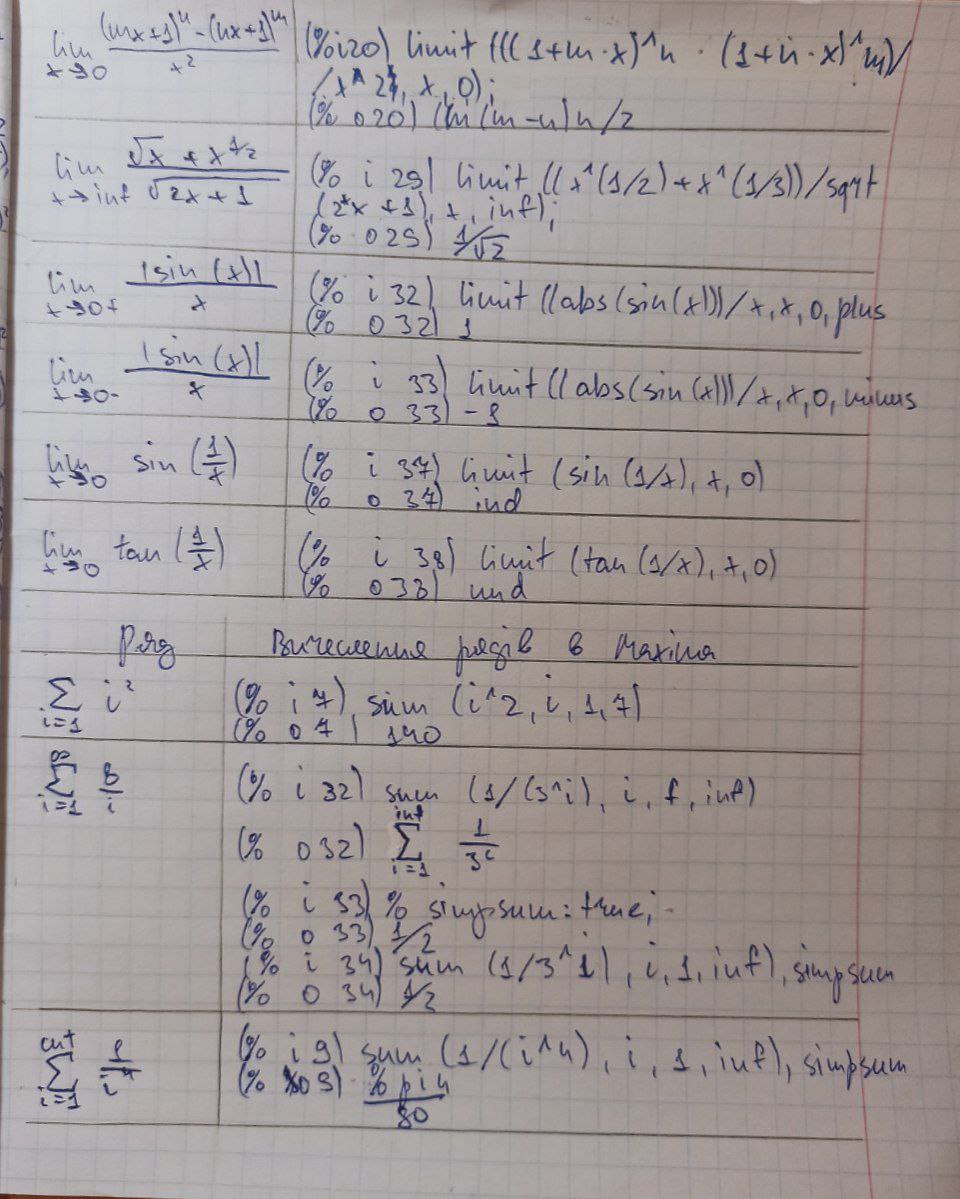 lim x→0 ((mx+1)^n - (nx+1)^m)/x² (%i20) limit (((1+m·x)^n · (1+n·x)^m)/
/x^2, x, 0);
(% o20) (m(m-n)n/2
lim x→inf (√x + x^1/2)/√(2x+1) (% i 29) limit ((x^(1/2)+x^(1/3))/sqrt
(2*x+1), x, inf);
(% o29) 1/√2
lim x→0+ |sin (x)|/x (% i 32) limit ((abs(sin(x)))/x,x,0,plus
(% o 32) 1
lim x→0- |sin (x)|/x (% i 33) limit((abs(sin(x)))/x,x,0,minus
(% o 33) -1
lim x→0 sin (1/x) (% i 37) limit (sin (1/x), x, 0)
(% o 37) ind
lim x→0 tan (1/x) (% i 38) limit (tan (1/x), x, 0)
(% o 38) und
Ряд Вичесления рядів в Maxima
∑ i=1 i² (% i 7) sum (i^2, i, 1, 7)
(% o 7) 140
∞ ∑ i=1 (% i 32) sum (1/(3^i), i, 1, inf)
(% o 32) inf ∑ i=1 1/3^i
(% i 33) % simpsum: true;
(% o 33) 1/2
(% i 34) sum (1/3^1), i, 1, inf), simpsum
(% o 34) 1/2
∑ i=1 (% i 9) sum (1/(i^4), i, 1, inf), simpsum
(% o9) % pi 4